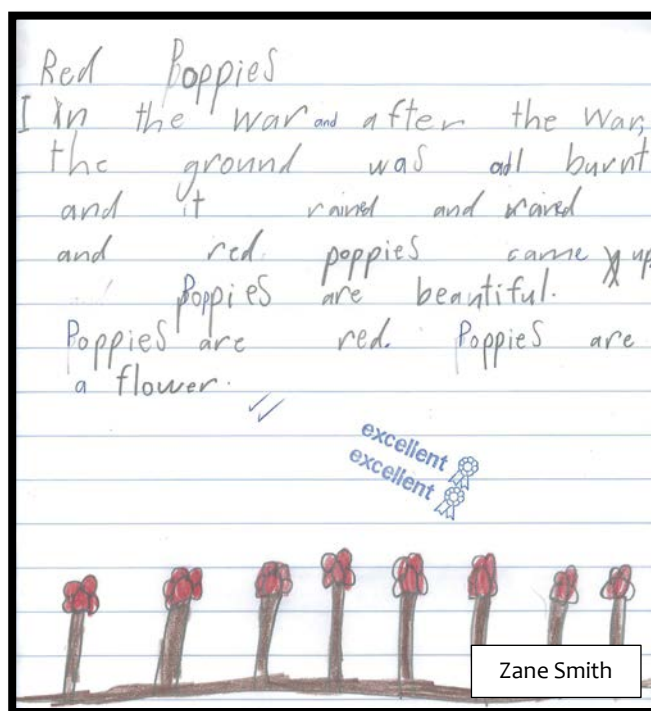 Red Poppies
I In the war and after the war,
the ground was all burnt
and it rained and rained
and red poppies came up.
Poppies are beautiful.
Poppies are red. Poppies are
a flower.
excellent
excellent
Zane Smith